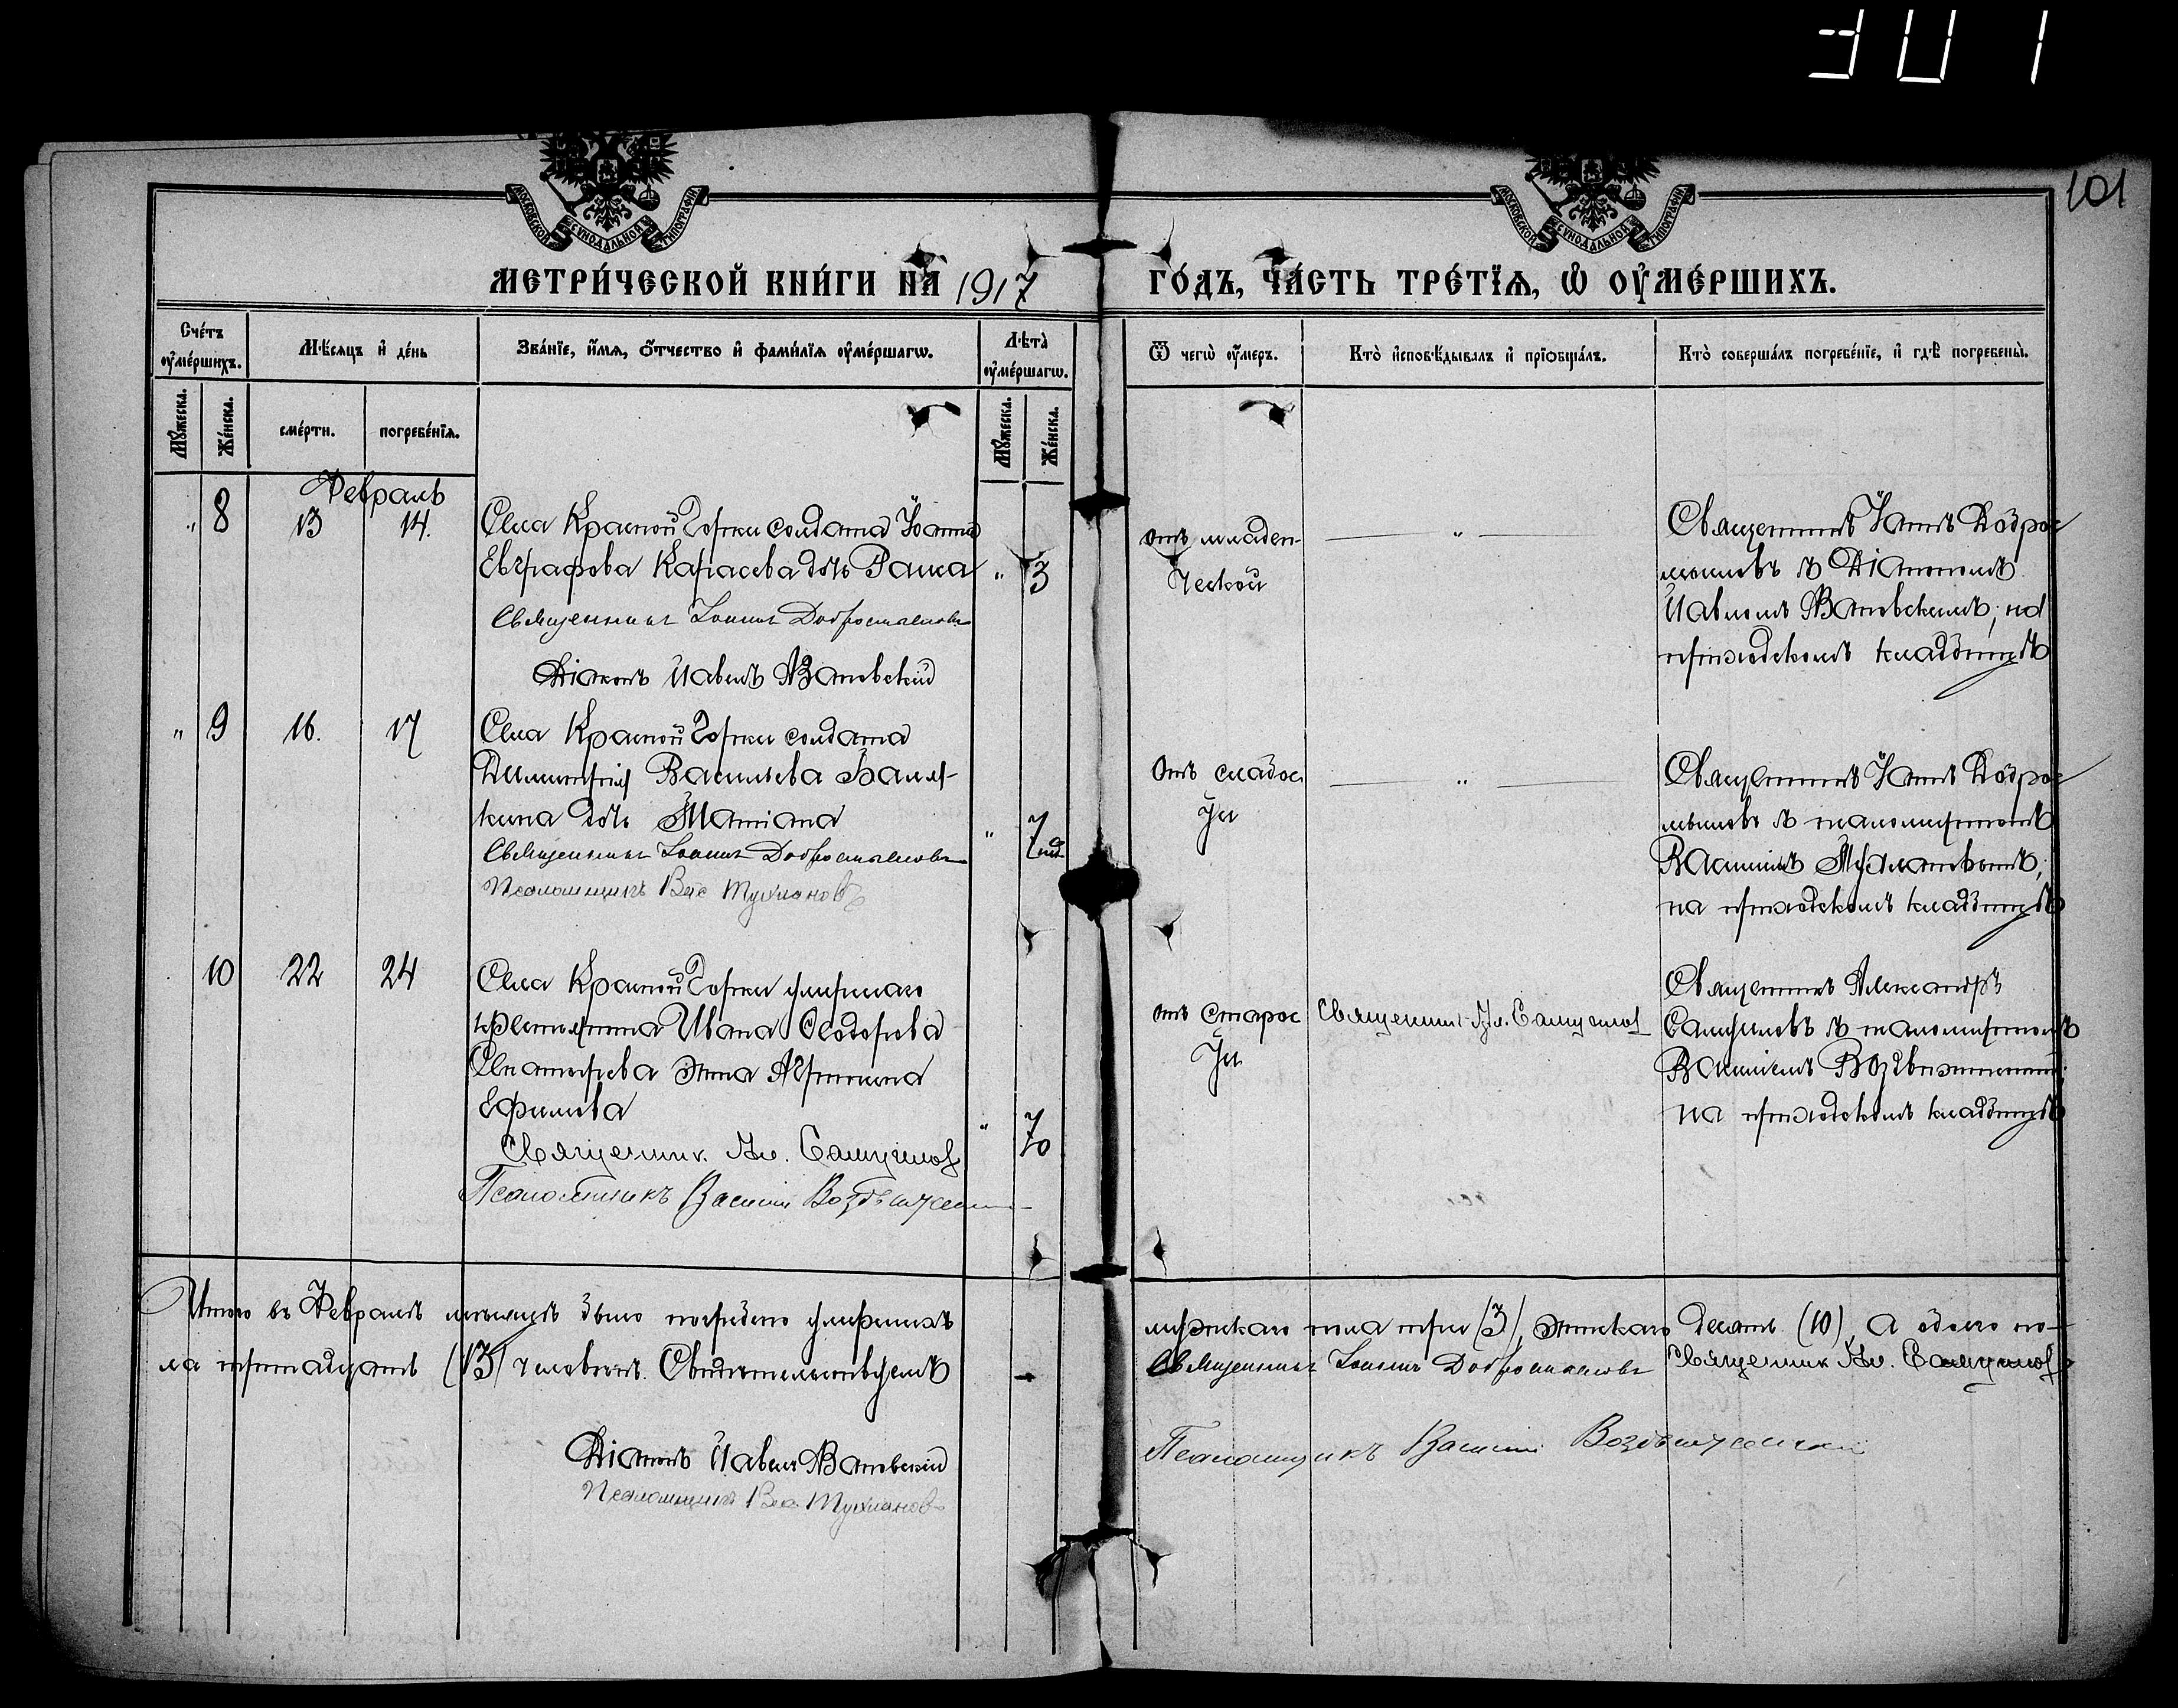 301
101
МОСКОВСКОЙ СѴНОДАЛЬНОЙ ТИПОГРАФІИ
МОСКОВСКОЙ СѴНОДАЛЬНОЙ ТИПОГРАФІИ
МЕТРИ́ЧЕСКОЙ КНИ́ГИ НА 1917 ГО́ДЪ, ЧА́СТЬ ТРЕ́ТЇѦ, Ѡ҆ ОУ҆МЕ́РШИХЪ.
Сче́тъ оу҆ме́ршихъ.
Мꙋ́жеска.
Же́нска.
Мѣ́сяцъ и҆ де́нь
сме́рти.
погребе́нїѧ.
Зва́нїе, и҆́мѧ, ѻ҆́тчество и҆ фами́лїѧ оу҆ме́ршагѡ.
Лѣ́та̀ оу҆ме́ршагѡ.
Мꙋ́жеска.
Же́нска.
Ѿ чегѡ̀ оу҆́меръ.
Кто̀ и҆сповѣ́дывалъ и҆ прїѡбща́лъ.
Кто̀ соверша́лъ погребе́нїе, и҆ гдѣ̀ погребены̀.
Февраль
" 8 13 14.
Села Красной Горки солдата Іоанна
Евграфова Карасева дочь Раиса " 3
Священникъ Іоаннъ Добросмысловъ
Діаконъ Павелъ
отъ младен-
ческой
"
Священникъ Іоаннъ Доброс
мысловъ съ Діакономъ
Павломъ на
приходскомъ кладбищѣ
" 9 16. 17
Села Красной Горки солдата
Димитрія Васильева
кина дочь Татіана " 7 нед
Священникъ Іоаннъ Добросмысловъ
Псаломщикъ Вас Тухлановъ
Отъ слабос
ти
"
Священникъ Іоаннъ Доброс
мысловъ съ псаломщикомъ
Василіемъ
на приходскомъ кладбищѣ
10 22 24
Села Красной Горки умершаго
крестьянина Ивана Ѳеодорова
жена
Ефимова " 70
Священник. Ал.
Псаломщикъ Василій Воздвиженск
отъ старос
ти
Священникъ Ал.
Священникъ Александръ
съ псаломщикомъ
Василіемъ Воздвиженскимъ;
на приходскомъ кладбищѣ
Итого въ Февралѣ мѣсяцѣ было погребено умершихъ
мужскаго пола три (3), женскаго десять (10), а обоего по-
ла тринадцать (13) человѣкъ. Свидѣтельствуемъ
Священникъ Іоаннъ Добросмысловъ Священник Ал.
Діаконъ Павелъ
Псаломщикъ Вас Тухлановъ
Псаломщикъ Василій Воздвиженскій